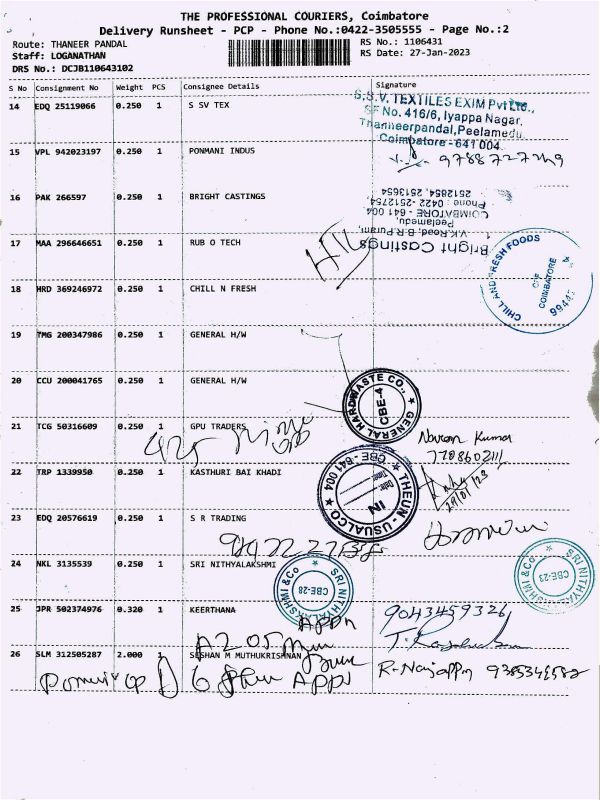 THE PROFESSIONAL COURIERS, Coimbatore
Delivery Runsheet - PCP - Phone No.:0422-3505555 - Page No.:2
Route: THANEER PANDAL
RS No.: 1106431
Staff: LOGANATHAN
RS Date: 27-Jan-2023
DRS No.: DCJB110643102
S No Consignment No Weight PCS Consignee Details Signature
14 EDQ 25119066 0.250 1 S SV TEX
S.S.V. TEXTILES EXIM Pvt Ltd.,
SF No. 416/6, Iyappa Nagar,
Thanneerpandal, Peelamedu
Coimbatore - 641 004
15 VPL 942023197 0.250 1 PONMANI INDUS
9788727249
16 PAK 266597 0.250 1 BRIGHT CASTINGS
Bright Castings
V.K.Road, B.R.Puram,
Peelamedu,
COIMBATORE - 641 004
Phone : 0422 - 2512754,
2512854, 2513654
17 MAA 296646651 0.250 1 RUB O TECH
18 HRD 369246972 0.250 1 CHILL N FRESH
CHILL AND FRESH FOODS
COIMBATORE
19 TMG 200347986 0.250 1 GENERAL H/W
20 CCU 200041765 0.250 1 GENERAL H/W
GENERAL HARDWASTE CO.,
CBE-4
21 TCG 50316609 0.250 1 GPU TRADERS
Kumar
7708602111
22 TRP 1339950 0.250 1 KASTHURI BAI KHADI
THEUN - USUALCO
CBE - 641 004
IN
Date:
Time:
23 EDQ 20576619 0.250 1 S R TRADING
24 NKL 3135539 0.250 1 SRI NITHYALAKSHMI
SRI NITHYALAKSHMI & Co
CBE-28
SRI NITHYALAKSHMI & Co
CBE-23
25 JPR 502374976 0.320 1 KEERTHANA
9043459326
26 SLM 312505287 2.000 1 SESHAN M MUTHUKRISHNAN